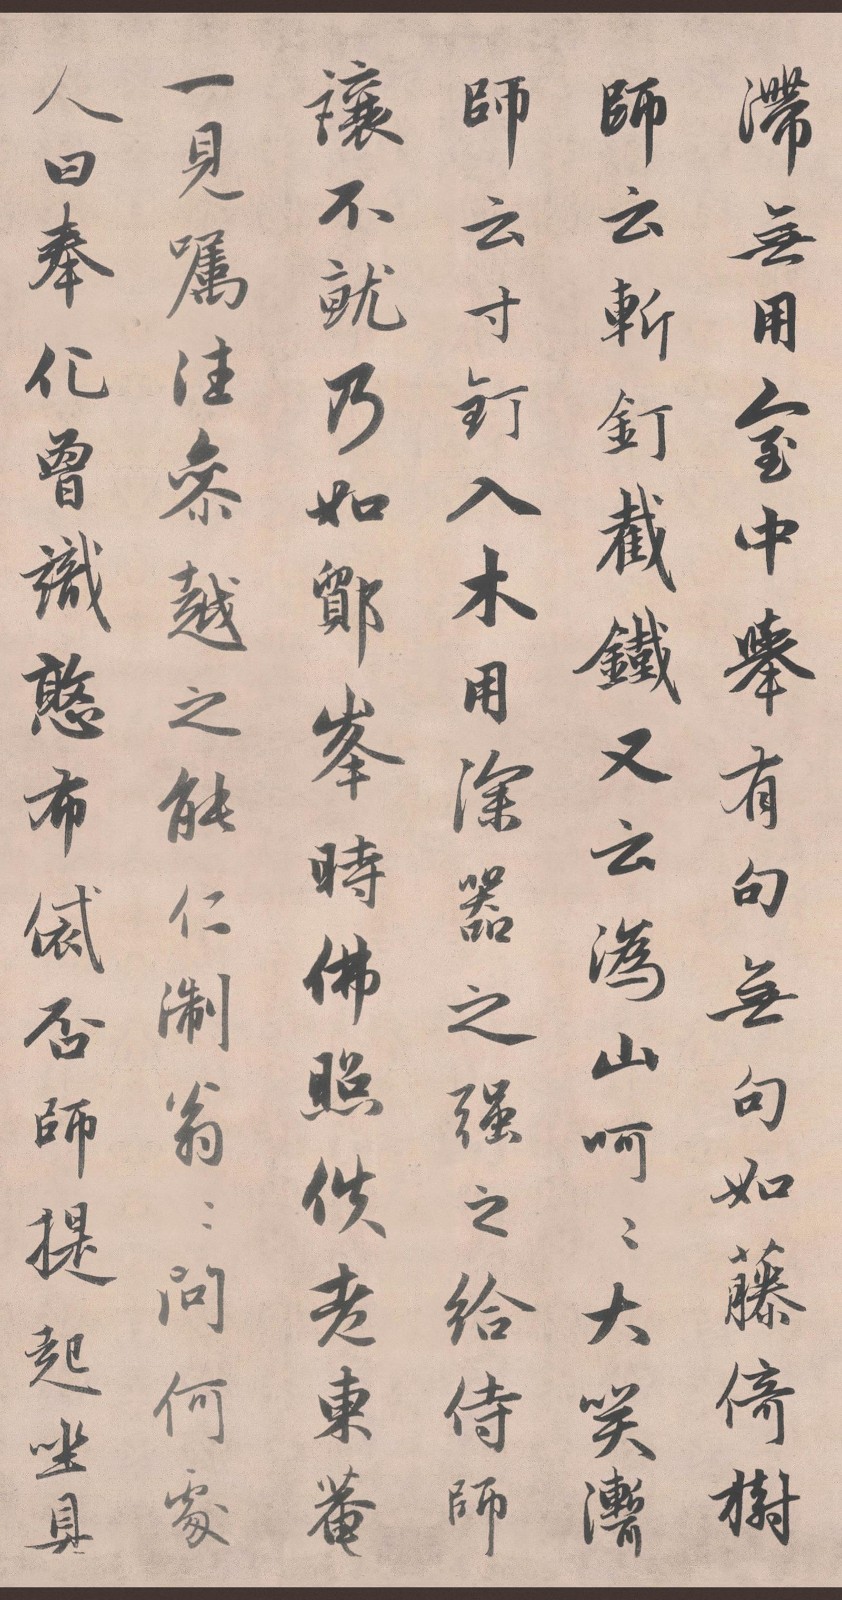 滯無用室中舉有句無句如藤倚樹
師云斬釘截鐵又云溈山呵〻大笑漸
師云寸釘入木用深器之强之給侍師
讓不就乃如鄮峯時佛照佚老東菴
一見囑洼叅越之能仁淛翁〻問何處
人曰奉化曾識憨布袋否師提起坐具